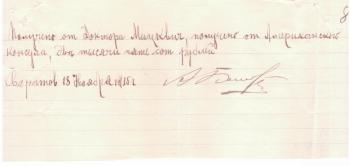 8
Получено от Доктора Мицкевич, получено от Американского
консула, две тысячи пять сот рублей
Саратов 18 Ноября 1918 г.